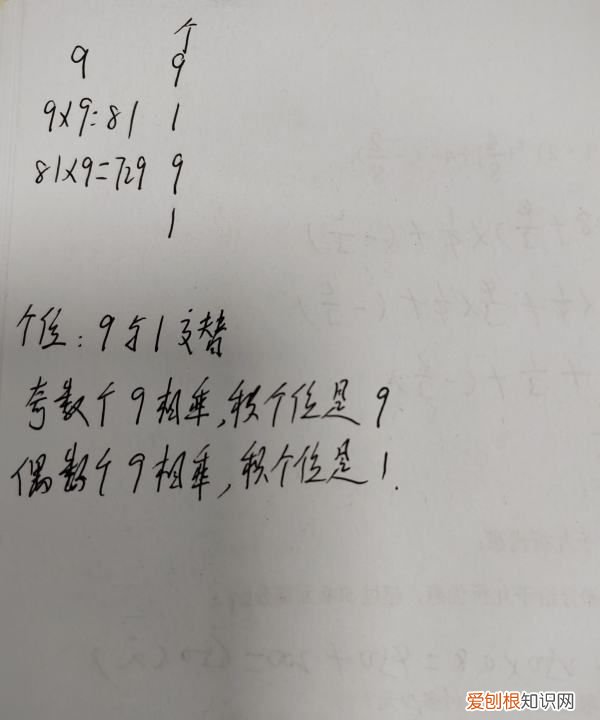 个
9 9
9×9=81 1
81×9=729 9
1
个位：9与1交替
奇数个9相乘，积个位是9
偶数个9相乘，积个位是1.
爱刨根知识网